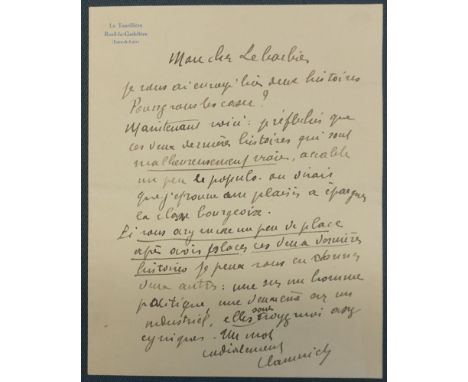 La Tourillière
Rueil-la-Gadelière
(Eure-et-Loir)
Mon cher Lebarbier
Je vous ai envoyé hier deux histoires
Pouvez vous les caser ?
Maintenant voici : que
ces deux dernières histoires qui sont
malheureusement vraies, accable
un peu le populo. on dirait
que j'éprouve un plaisir à épargner
la classe bourgeoise.
Si vous avez encore un peu de place
après avoir placé ces deux dernières
histoires je peux vous en donner
deux autres : une sur un homme
politique, une deuxième sur un
industriel, elles sont croyez moi assez
cyniques. Un mot
cordialement
Vlaminck